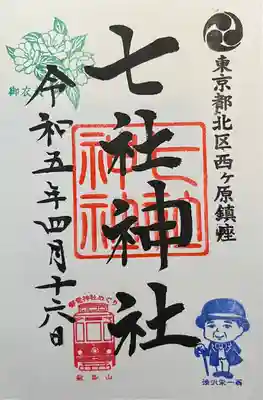 東京都北区西ヶ原鎮座
七社神社
令和五年四月十六日
御衣
七社
神社
御朱印神社めぐり
飛鳥山
渋沢栄一翁